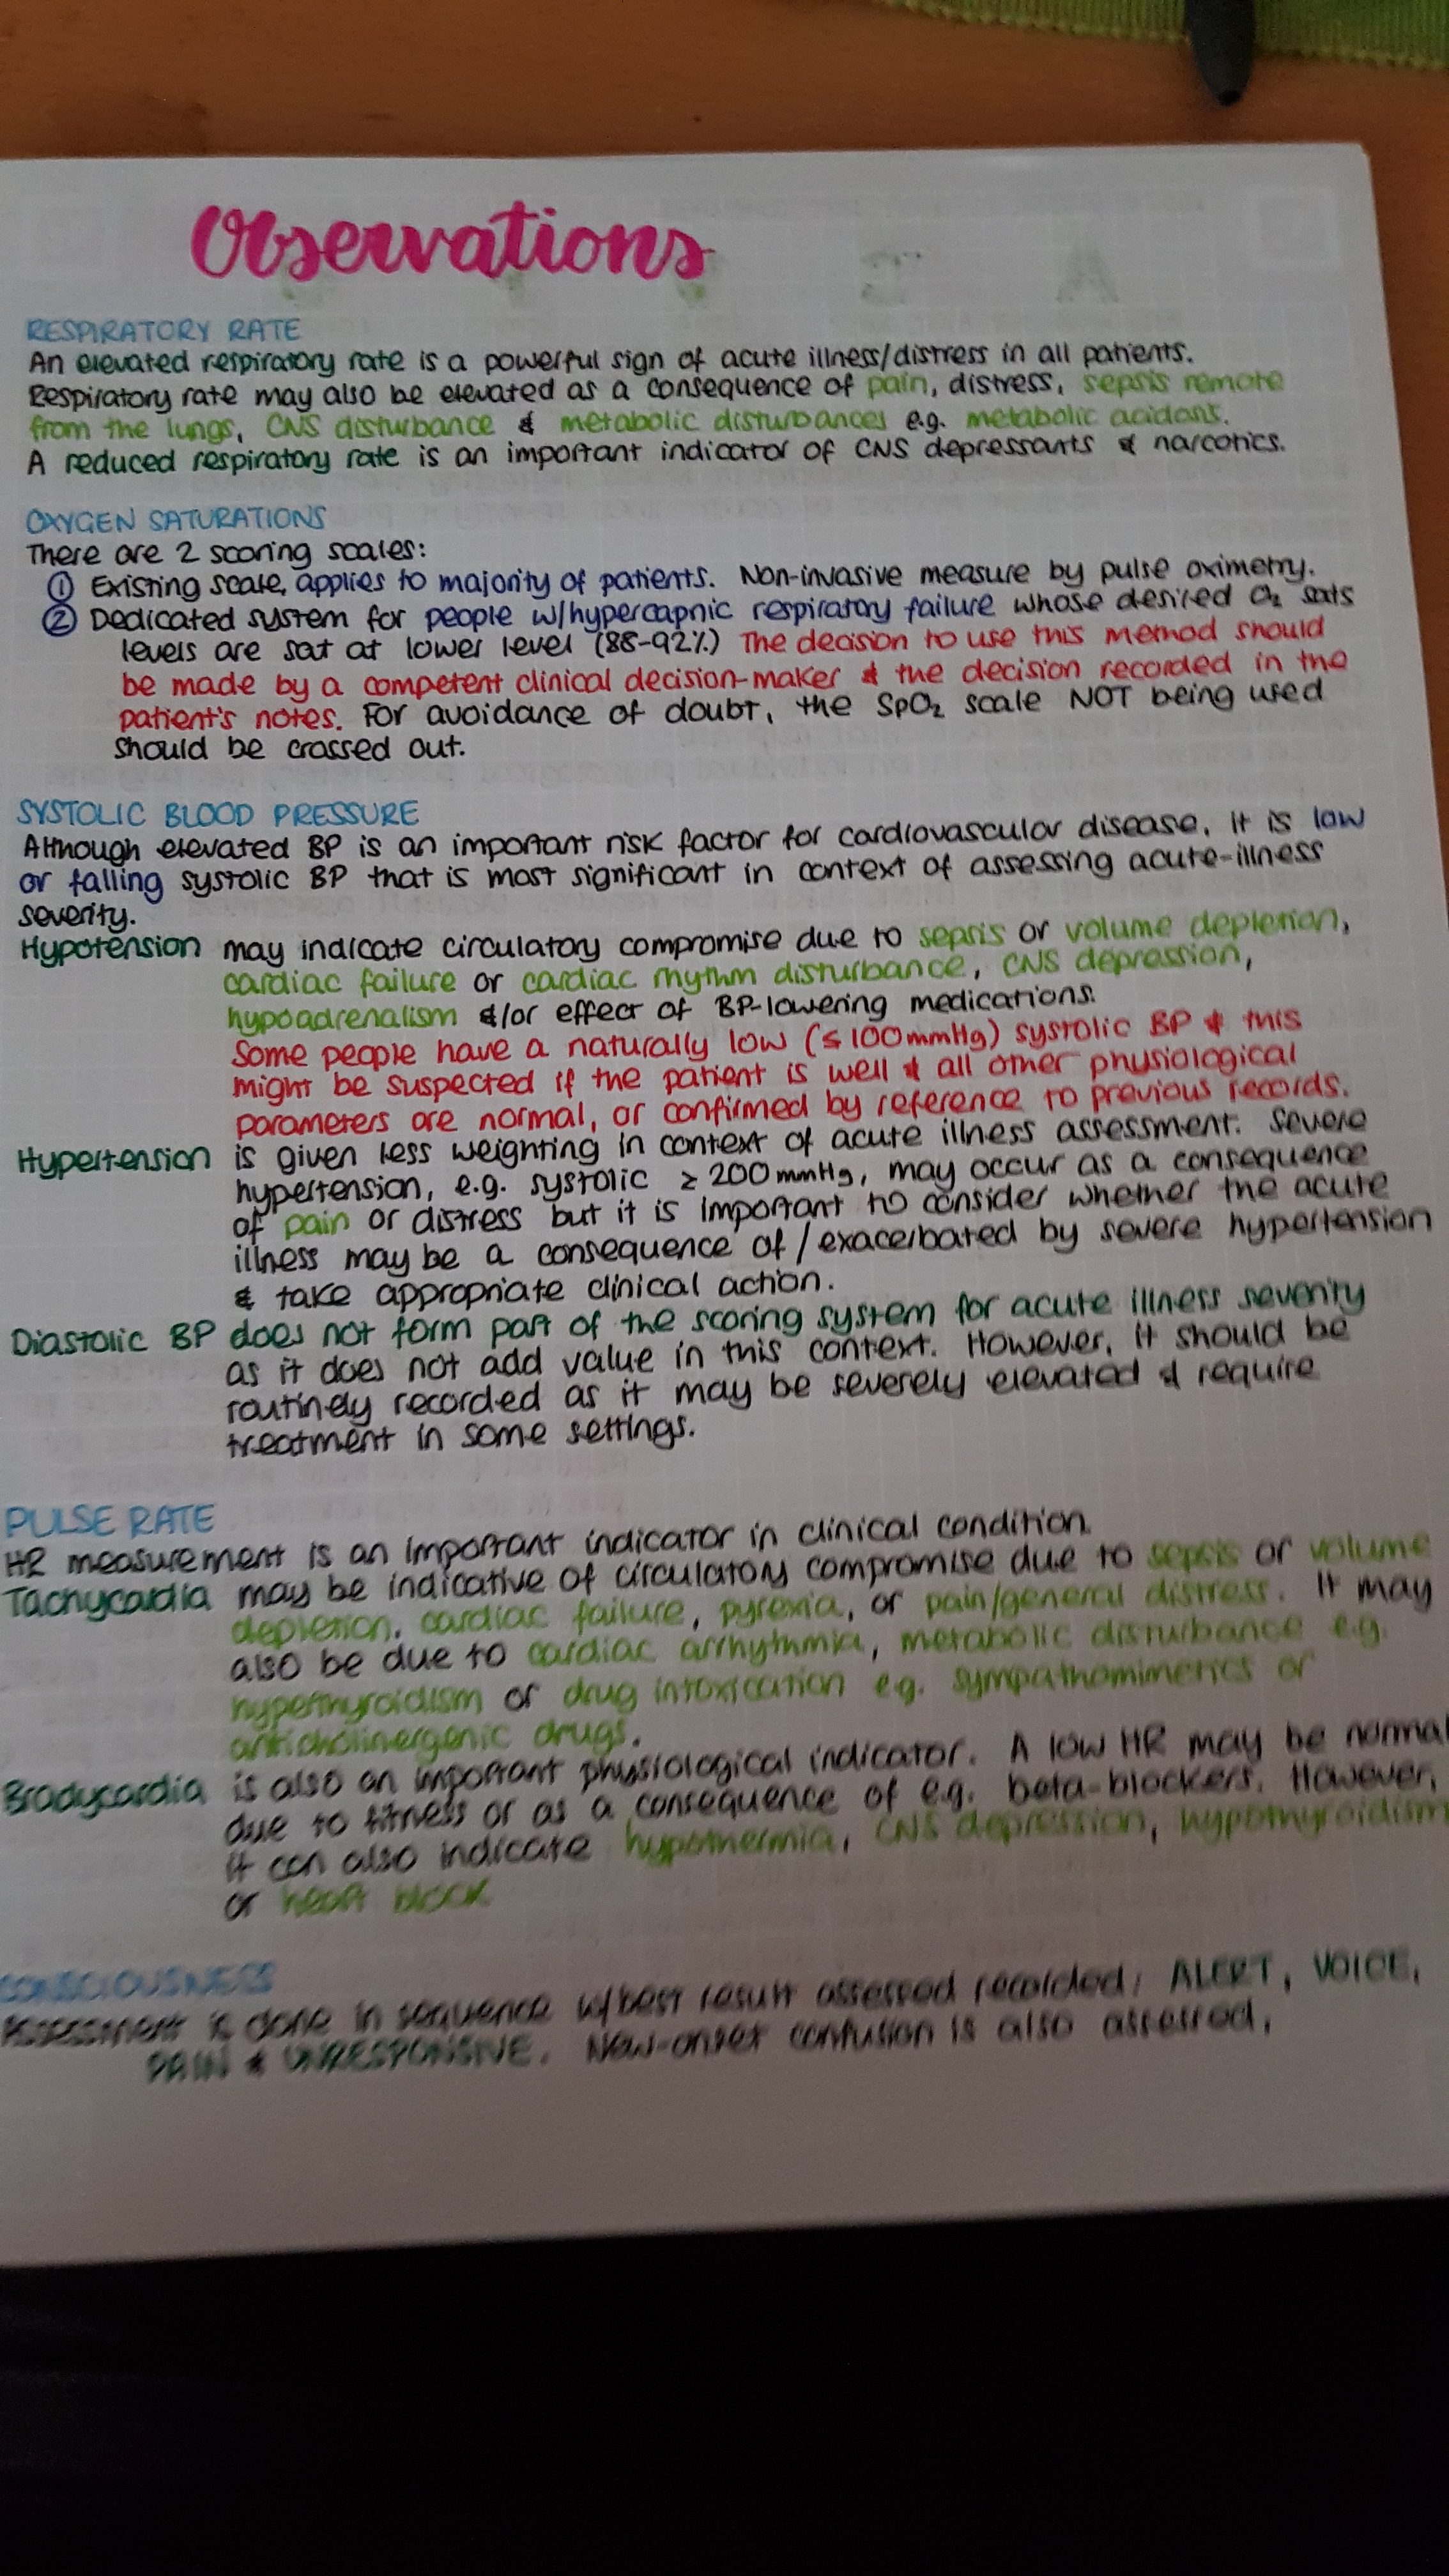 Observations
RESPIRATORY RATE
An elevated respiratory rate is a powerful sign of acute illness/distress in all patients.
Respiratory rate may also be elevated as a consequence of pain, distress, sepsis remote
from the lungs, CNS disturbance & metabolic disturbances e.g. metabolic acidosis.
A reduced respiratory rate is an important indicator of CNS depressants & narcotics.
OXYGEN SATURATIONS
There are 2 scoring scales:
① Existing scale, applies to majority of patients. Non-invasive measure by pulse oximetry.
② Dedicated system for people w/hypercapnic respiratory failure whose desired O₂ sats
levels are sat at lower level (88-92%) The decision to use this method should
be made by a competent clinical decision-maker & the decision recorded in the
patient's notes. For avoidance of doubt, the SpO₂ scale NOT being used
should be crossed out.
SYSTOLIC BLOOD PRESSURE
Although elevated BP is an important risk factor for cardiovascular disease, it is low
or falling systolic BP that is most significant in context of assessing acute-illness
severity.
Hypotension may indicate circulatory compromise due to sepsis or volume depletion,
cardiac failure or cardiac rhythm disturbance, CNS depression,
hypoadrenalism &/or effect of BP-lowering medications.
Some people have a naturally low (≤100mmHg) systolic BP & this
might be suspected if the patient is well & all other physiological
parameters are normal, or confirmed by reference to previous records.
Hypertension is given less weighting in context of acute illness assessment. Severe
hypertension, e.g. systolic ≥ 200mmHg, may occur as a consequence
of pain or distress but it is important to consider whether the acute
illness may be a consequence of/exacerbated by severe hypertension
& take appropriate clinical action.
Diastolic BP does not form part of the scoring system for acute illness severity
as it does not add value in this context. However, it should be
routinely recorded as it may be severely elevated & require
treatment in some settings.
PULSE RATE
HR measurement is an important indicator in clinical condition.
Tachycardia may be indicative of circulatory compromise due to sepsis or volume
depletion, cardiac failure, pyrexia, or pain/general distress. It may
also be due to cardiac arrhythmia, metabolic disturbance e.g.
hyperthyroidism or drug intoxication e.g. sympathomimetics or
anticholinergenic drugs.
Bradycardia is also an important physiological indicator. A low HR may be normal
due to fitness or as a consequence of e.g. beta-blockers. However,
it can also indicate hypothermia, CNS depression, hypothyroidism
or heart block
CONSCIOUSNESS
Assessment is done in sequence w/best result assessed recorded; ALERT, VOICE,
PAIN & UNRESPONSIVE. New-onset confusion is also assessed,